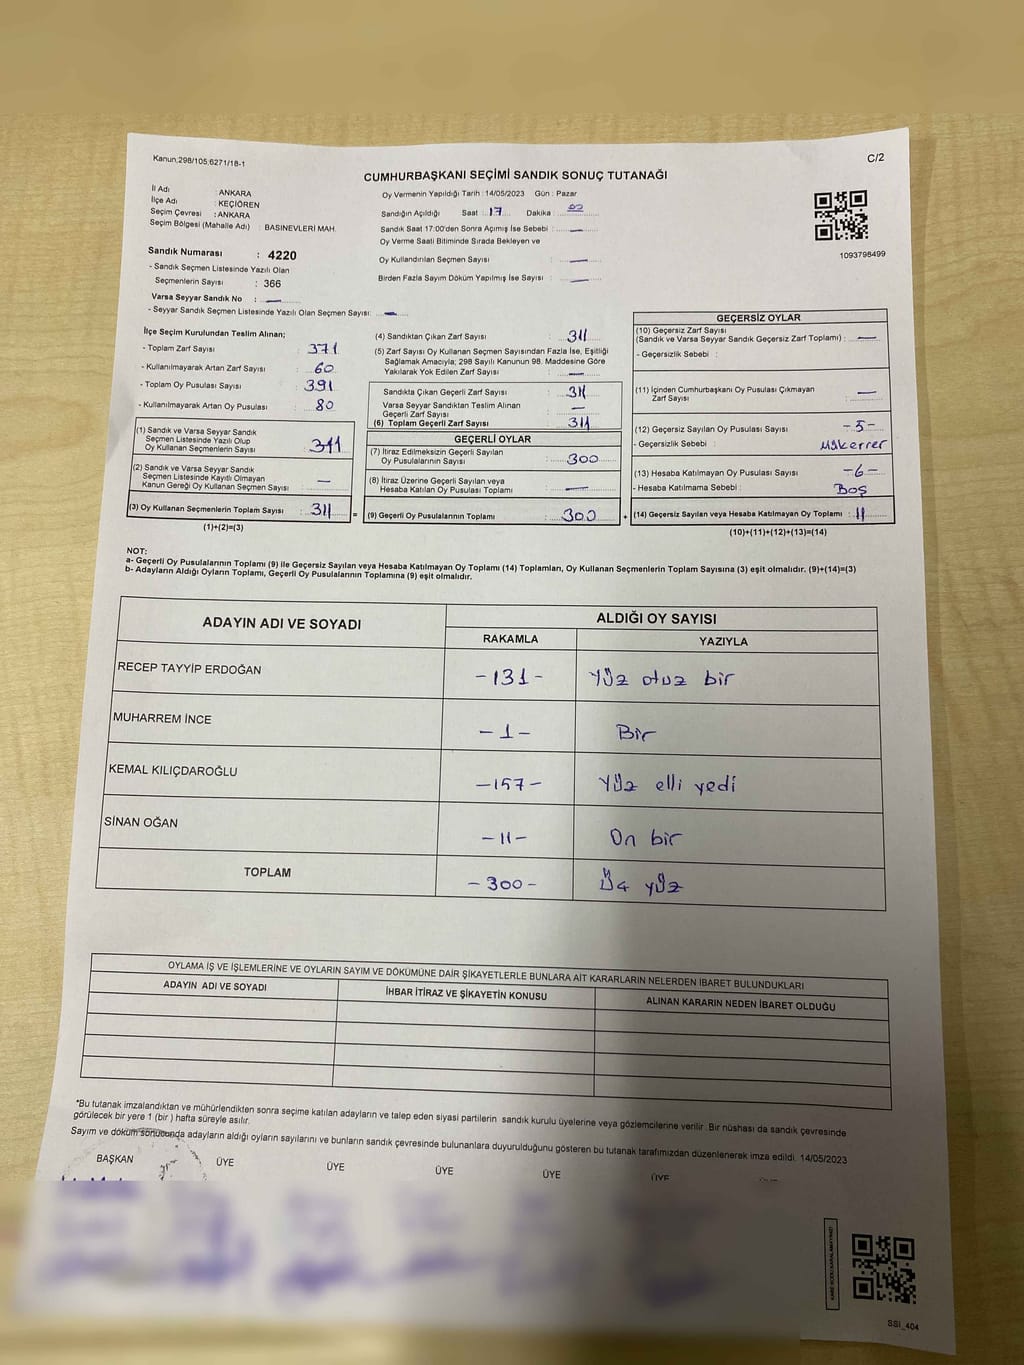 Kanun;298/105;6271/18-1
C/2
CUMHURBAŞKANI SEÇİMİ SANDIK SONUÇ TUTANAĞI
İl Adı : ANKARA
İlçe Adı : KEÇİÖREN
Seçim Çevresi : ANKARA
Seçim Bölgesi (Mahalle Adı) : BASINEVLERİ MAH.
Oy Vermenin Yapıldığı Tarih :14/05/2023 Gün : Pazar
Sandığın Açıldığı Saat : 17 Dakika : 00
Sandık Saat 17:00'den Sonra Açımış İse Sebebi : —
Oy Verme Saati Bitiminde Sırada Bekleyen ve
Oy Kullandırılan Seçmen Sayısı : —
Birden Fazla Sayım Döküm Yapılmış İse Sayısı : —
1093798499
Sandık Numarası : 4220
- Sandık Seçmen Listesinde Yazılı Olan
Seçmenlerin Sayısı : 366
Varsa Seyyar Sandık No : —
- Seyyar Sandık Seçmen Listesinde Yazılı Olan Seçmen Sayısı: —
İlçe Seçim Kurulundan Teslim Alınan;
- Toplam Zarf Sayısı : 371
- Kullanılmayarak Artan Zarf Sayısı : 60
- Toplam Oy Pusulası Sayısı : 391
- Kullanılmayarak Artan Oy Pusulası : 80
(1) Sandık ve Varsa Seyyar Sandık
Seçmen Listesinde Yazılı Olup
Oy Kullanan Seçmenlerin Sayısı : 311
(2) Sandık ve Varsa Seyyar Sandık
Seçmen Listesinde Kayıtlı Olmayan
Kanun Gereği Oy Kullanan Seçmen Sayısı : —
(3) Oy Kullanan Seçmenlerin Toplam Sayısı : 311 =
(1)+(2)=(3)
(4) Sandıktan Çıkan Zarf Sayısı : 311
(5) Zarf Sayısı Oy Kullanan Seçmen Sayısından Fazla İse, Eşitliği
Sağlamak Amacıyla; 298 Sayılı Kanunun 98. Maddesine Göre
Yakılarak Yok Edilen Zarf Sayısı : —
Sandıkta Çıkan Geçerli Zarf Sayısı : 311
Varsa Seyyar Sandıktan Teslim Alınan
Geçerli Zarf Sayısı : —
(6) Toplam Geçerli Zarf Sayısı : 311
GEÇERLİ OYLAR
(7) İtiraz Edilmeksizin Geçerli Sayılan
Oy Pusulalarının Sayısı : 300
(8) İtiraz Üzerine Geçerli Sayılan veya
Hesaba Katılan Oy Pusulası Toplamı : —
(9) Geçerli Oy Pusulalarının Toplamı : 300 +
GEÇERSİZ OYLAR
(10) Geçersiz Zarf Sayısı
(Sandık ve Varsa Seyyar Sandık Geçersiz Zarf Toplamı) : —
- Geçersizlik Sebebi :
(11) İçinden Cumhurbaşkanı Oy Pusulası Çıkmayan
Zarf Sayısı : —
(12) Geçersiz Sayılan Oy Pusulası Sayısı : -5-
- Geçersizlik Sebebi : Mükerrer
(13) Hesaba Katılmayan Oy Pusulası Sayısı : -6-
- Hesaba Katılmama Sebebi : Boş
(14) Geçersiz Sayılan veya Hesaba Katılmayan Oy Toplamı : 11
(10)+(11)+(12)+(13)=(14)
NOT:
a- Geçerli Oy Pusulalarının Toplamı (9) ile Geçersiz Sayılan veya Hesaba Katılmayan Oy Toplamı (14) Toplamları, Oy Kullanan Seçmenlerin Toplam Sayısına (3) eşit olmalıdır. (9)+(14)=(3)
b- Adayların Aldığı Oyların Toplamı, Geçerli Oy Pusulalarının Toplamına (9) eşit olmalıdır.
ADAYIN ADI VE SOYADI
ALDIĞI OY SAYISI
RAKAMLA YAZIYLA
RECEP TAYYİP ERDOĞAN -131- Yüz otuz bir
MUHARREM İNCE -1- Bir
KEMAL KILIÇDAROĞLU -157- Yüz elli yedi
SİNAN OĞAN -11- On bir
TOPLAM -300- Üç yüz
OYLAMA İŞ VE İŞLEMLERİNE VE OYLARIN SAYIM VE DÖKÜMÜNE DAİR ŞİKAYETLERLE BUNLARA AİT KARARLARIN NELERDEN İBARET BULUNDUKLARI
ADAYIN ADI VE SOYADI İHBAR İTİRAZ VE ŞİKAYETİN KONUSU ALINAN KARARIN NEDEN İBARET OLDUĞU
*Bu tutanak imzalandıktan ve mühürlendikten sonra seçime katılan adayların ve talep eden siyasi partilerin sandık kurulu üyelerine veya gözlemcilerine verilir. Bir nüshası da sandık çevresinde
görülecek bir yere 1 (bir) hafta süreyle asılır.
Sayım ve döküm sonucunda adayların aldığı oyların sayılarını ve bunların sandık çevresinde bulunanlara duyurulduğunu gösteren bu tutanak tarafımızdan düzenlenerek imza edildi. 14/05/2023
BAŞKAN ÜYE ÜYE ÜYE ÜYE ÜYE
KARE KODU KARALAMAYINIZ!
SSI_404